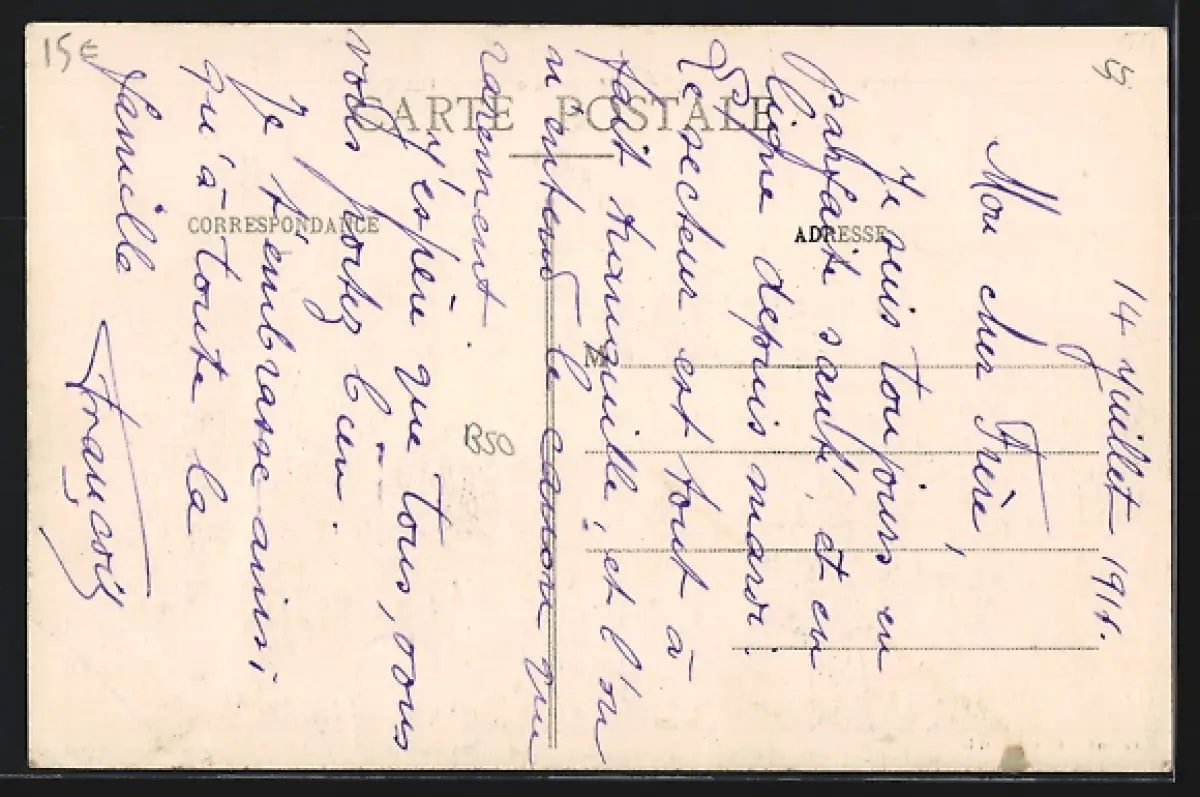 15€
CARTE POSTALE
CORRESPONDANCE
ADRESSE
M
B50
14 Juillet 1915.
Mon cher Frère,
Je suis toujours en
parfaite santé, et en
ligne depuis mardi.
Le secteur est tout à
fait tranquille, et l'on
n'entend le canon que
rarement.
J'espère que tous, vous
vous portez bien.
Je t'embrasse ainsi
qu'à toute la
famille
François